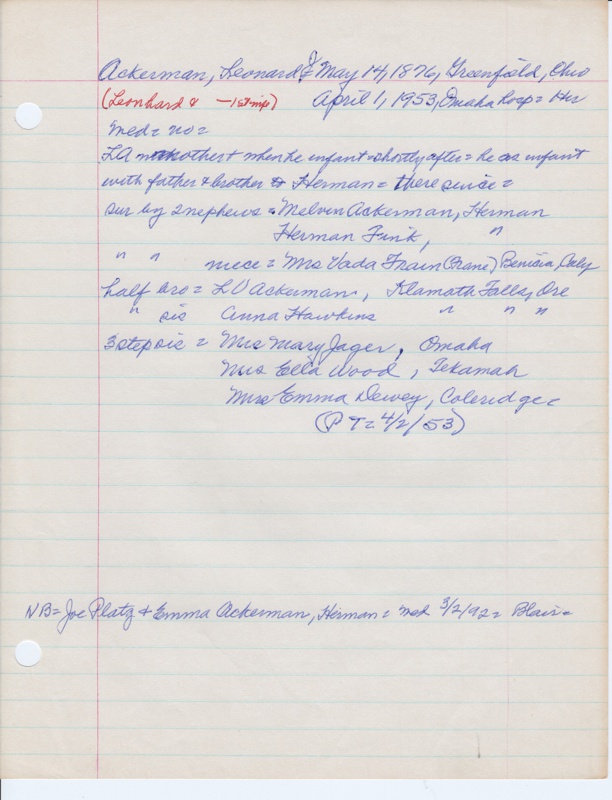 Ackerman, Leonard J = May 14, 1876, Greenfield, Ohio
(Leonhard & - 1st imp) April 1, 1953, Omaha hosp = Her
med = no =
LA mother + when he infant = shortly after = he as infant
with father & brother to Herman = there since =
sur by 2 nephews = Melvin Ackerman, Herman
Herman Fink, "
" " niece = Mrs Vada Frain (Crane) Benicia, Caly
half bro = L V Ackerman, Klamath Falls, Ore
" sis Anna Hawkins " " "
3 step sis = Mrs Mary Jager, Omaha
Mrs Ella Wood, Tekamah
Mrs Emma Dewey, Coleridge =
(P T = 4/2/53)
NB = Joe Platz & Emma Ackerman, Herman = med 3/2/92 = Blair =